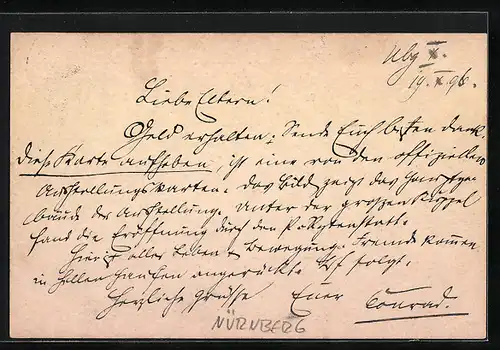 Nbg X.
19.X.96.
Liebe Eltern!
Geld erhalten; Sende Euch besten Dank.
Diese Karte aufheben, ist eine von den offiziellen
Ausstellungskarten. Das Bild zeigt das Hauptge-
bäude der Ausstellung. Unter der großen Kuppel
fand die Eröffnung durch den statt.
Hier ist alles Leben & Bewegung. Fremde kommen
in hellen Haufen angerückt. folgt.
Herzliche Grüsse Euer Conrad.
NÜRNBERG